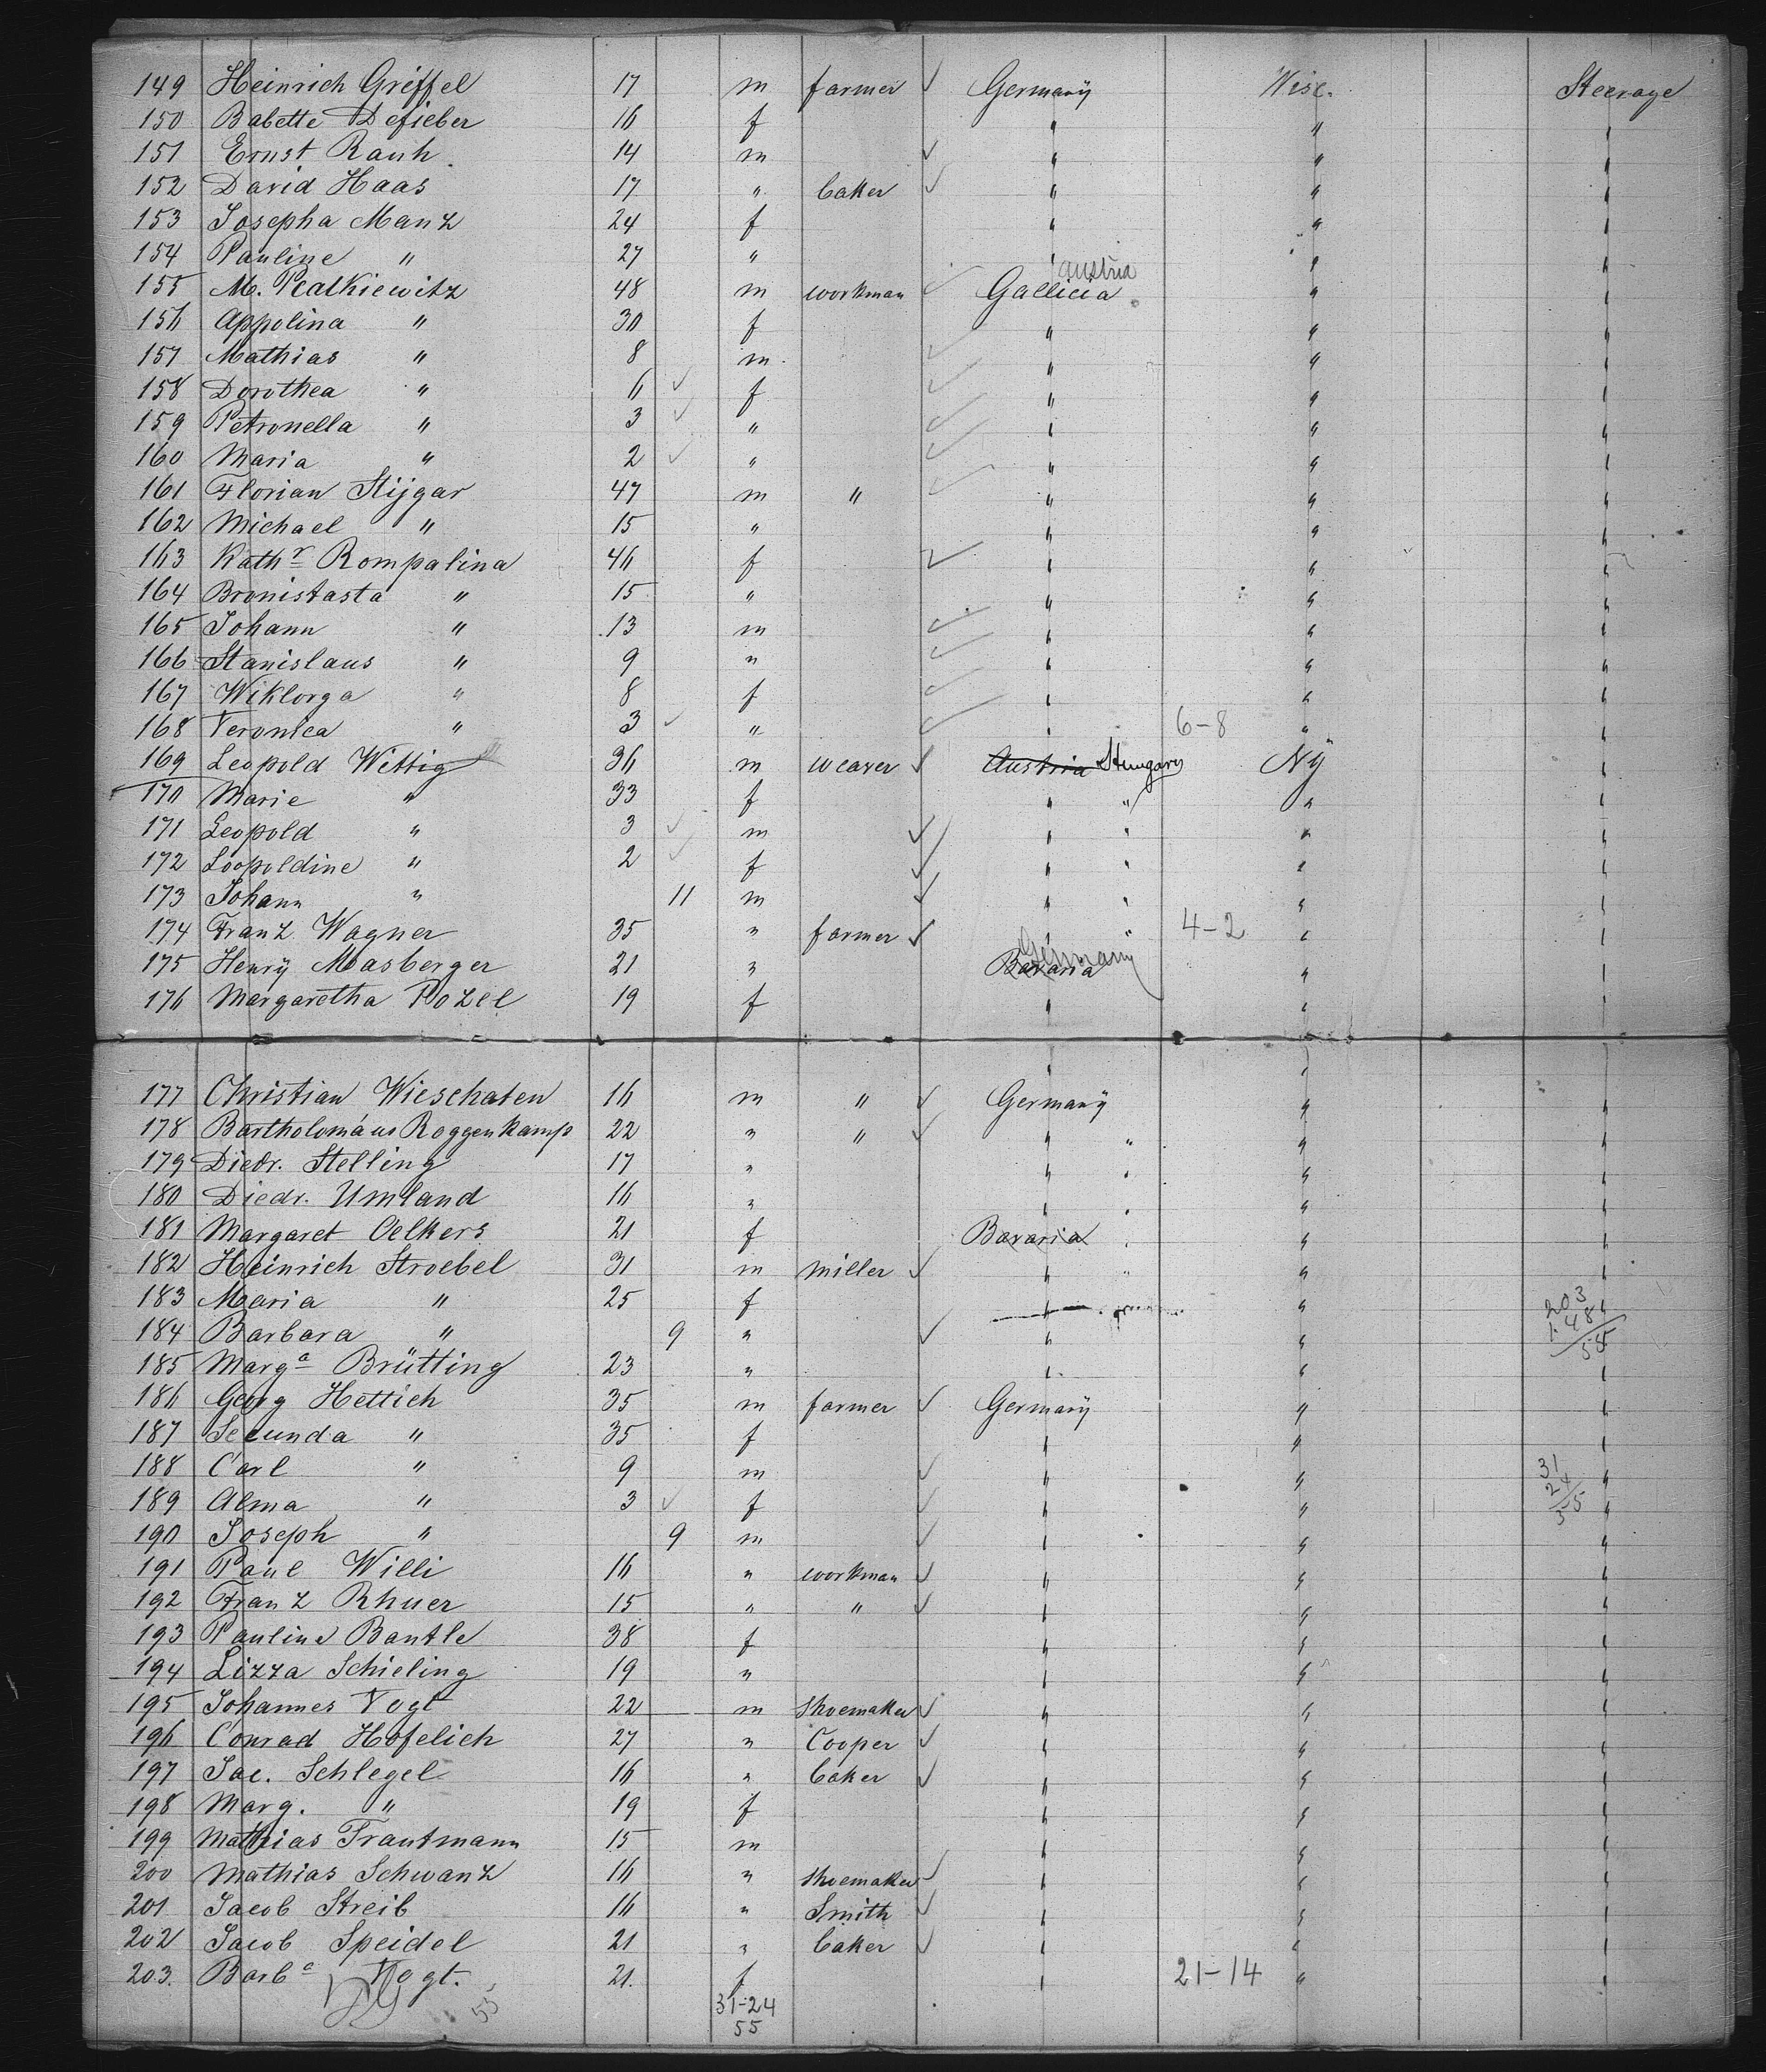 149 Heinrich Griffel 17 m farmer ✓ Germany Wisc. Steerage
150 Babette Defieber 16 f " " "
151 Ernst Rauh 14 m ✓ " " "
152 David Haas 17 " baker ✓ " " "
153 Josepha Manz 24 f " " "
154 Pauline " 27 " " " "
austria
155 M. Pealkiewitz 48 m workman ✓ Gallicia " "
156 Appolina " 30 f " " "
157 Mathias " 8 m ✓ " " "
158 Dorothea " 6 ✓ f ✓ " " "
159 Petronella " 3 ✓ " ✓ " " "
160 Maria " 2 ✓ " ✓ " " "
161 Florian Stijgar 47 m " ✓ " " "
162 Michael " 15 " " " "
163 Kathr Rompalina 46 f ✓ " " "
164 Bronistasta " 15 " " " "
165 Johann " 13 m ✓ " " "
166 Stanislaus " 9 " ✓ " " "
167 Wiklorga " 8 f ✓ " " "
168 Veronica " 3 ✓ " ✓ " 6-8 " "
169 Leopold Wittig 36 m weaver ✓ Austria Hungary NY "
170 Marie " 33 f " " " "
171 Leopold " 3 ✓ m ✓ " " " "
172 Leopoldine " 2 ✓ f ✓ " " " "
173 Johann " 11 m ✓ " " " "
174 Franz Wagner 35 " farmer ✓ " " 4-2 " "
Germany
175 Henry Masberger 21 " Bavaria " "
176 Margaretha Pozel 19 f " " "
177 Christian Wieschaten 16 m " ✓ Germany " "
178 Bartholomäus Roggenkamp 22 " " ✓ " " " "
179 Diedr. Stelling 17 " " " " "
180 Diedr. Umland 16 " " " " "
181 Margaret Oelkers 21 f Bavaria " " "
182 Heinrich Stroebel 31 m miller ✓ " " " "
183 Maria " 25 f " " "
203
148
55
184 Barbara " 9 " ✓ " " "
185 Marga Brütting 23 " " " "
186 Georg Hettich 35 m farmer ✓ Germany " "
187 Secunda " 35 f " " "
188 Carl " 9 m ✓ " " "
31
24
55
189 Alma " 3 ✓ f ✓ " " "
190 Joseph " 9 m ✓ " " "
191 Paul Willi 16 " workman ✓ " " "
192 Franz Rhuer 15 " " ✓ " " "
193 Pauline Bantle 38 f " " "
194 Lizza Schieling 19 " " " "
195 Johannes Vogt 22 m shoemaker ✓ " " "
196 Conrad Hofelich 27 " Cooper ✓ " " "
197 Jac. Schlegel 16 " baker ✓ " " "
198 Marg. " 19 f " " "
199 Mathias Trautmann 15 m " " "
200 Mathias Schwanz 16 " shoemaker ✓ " " "
201 Jacob Streib 16 " Smith ✓ " " "
202 Jacob Speidel 21 " baker ✓ " " "
203. Barba Vogt. 21. f " 21-14 " "
55
31-24
55